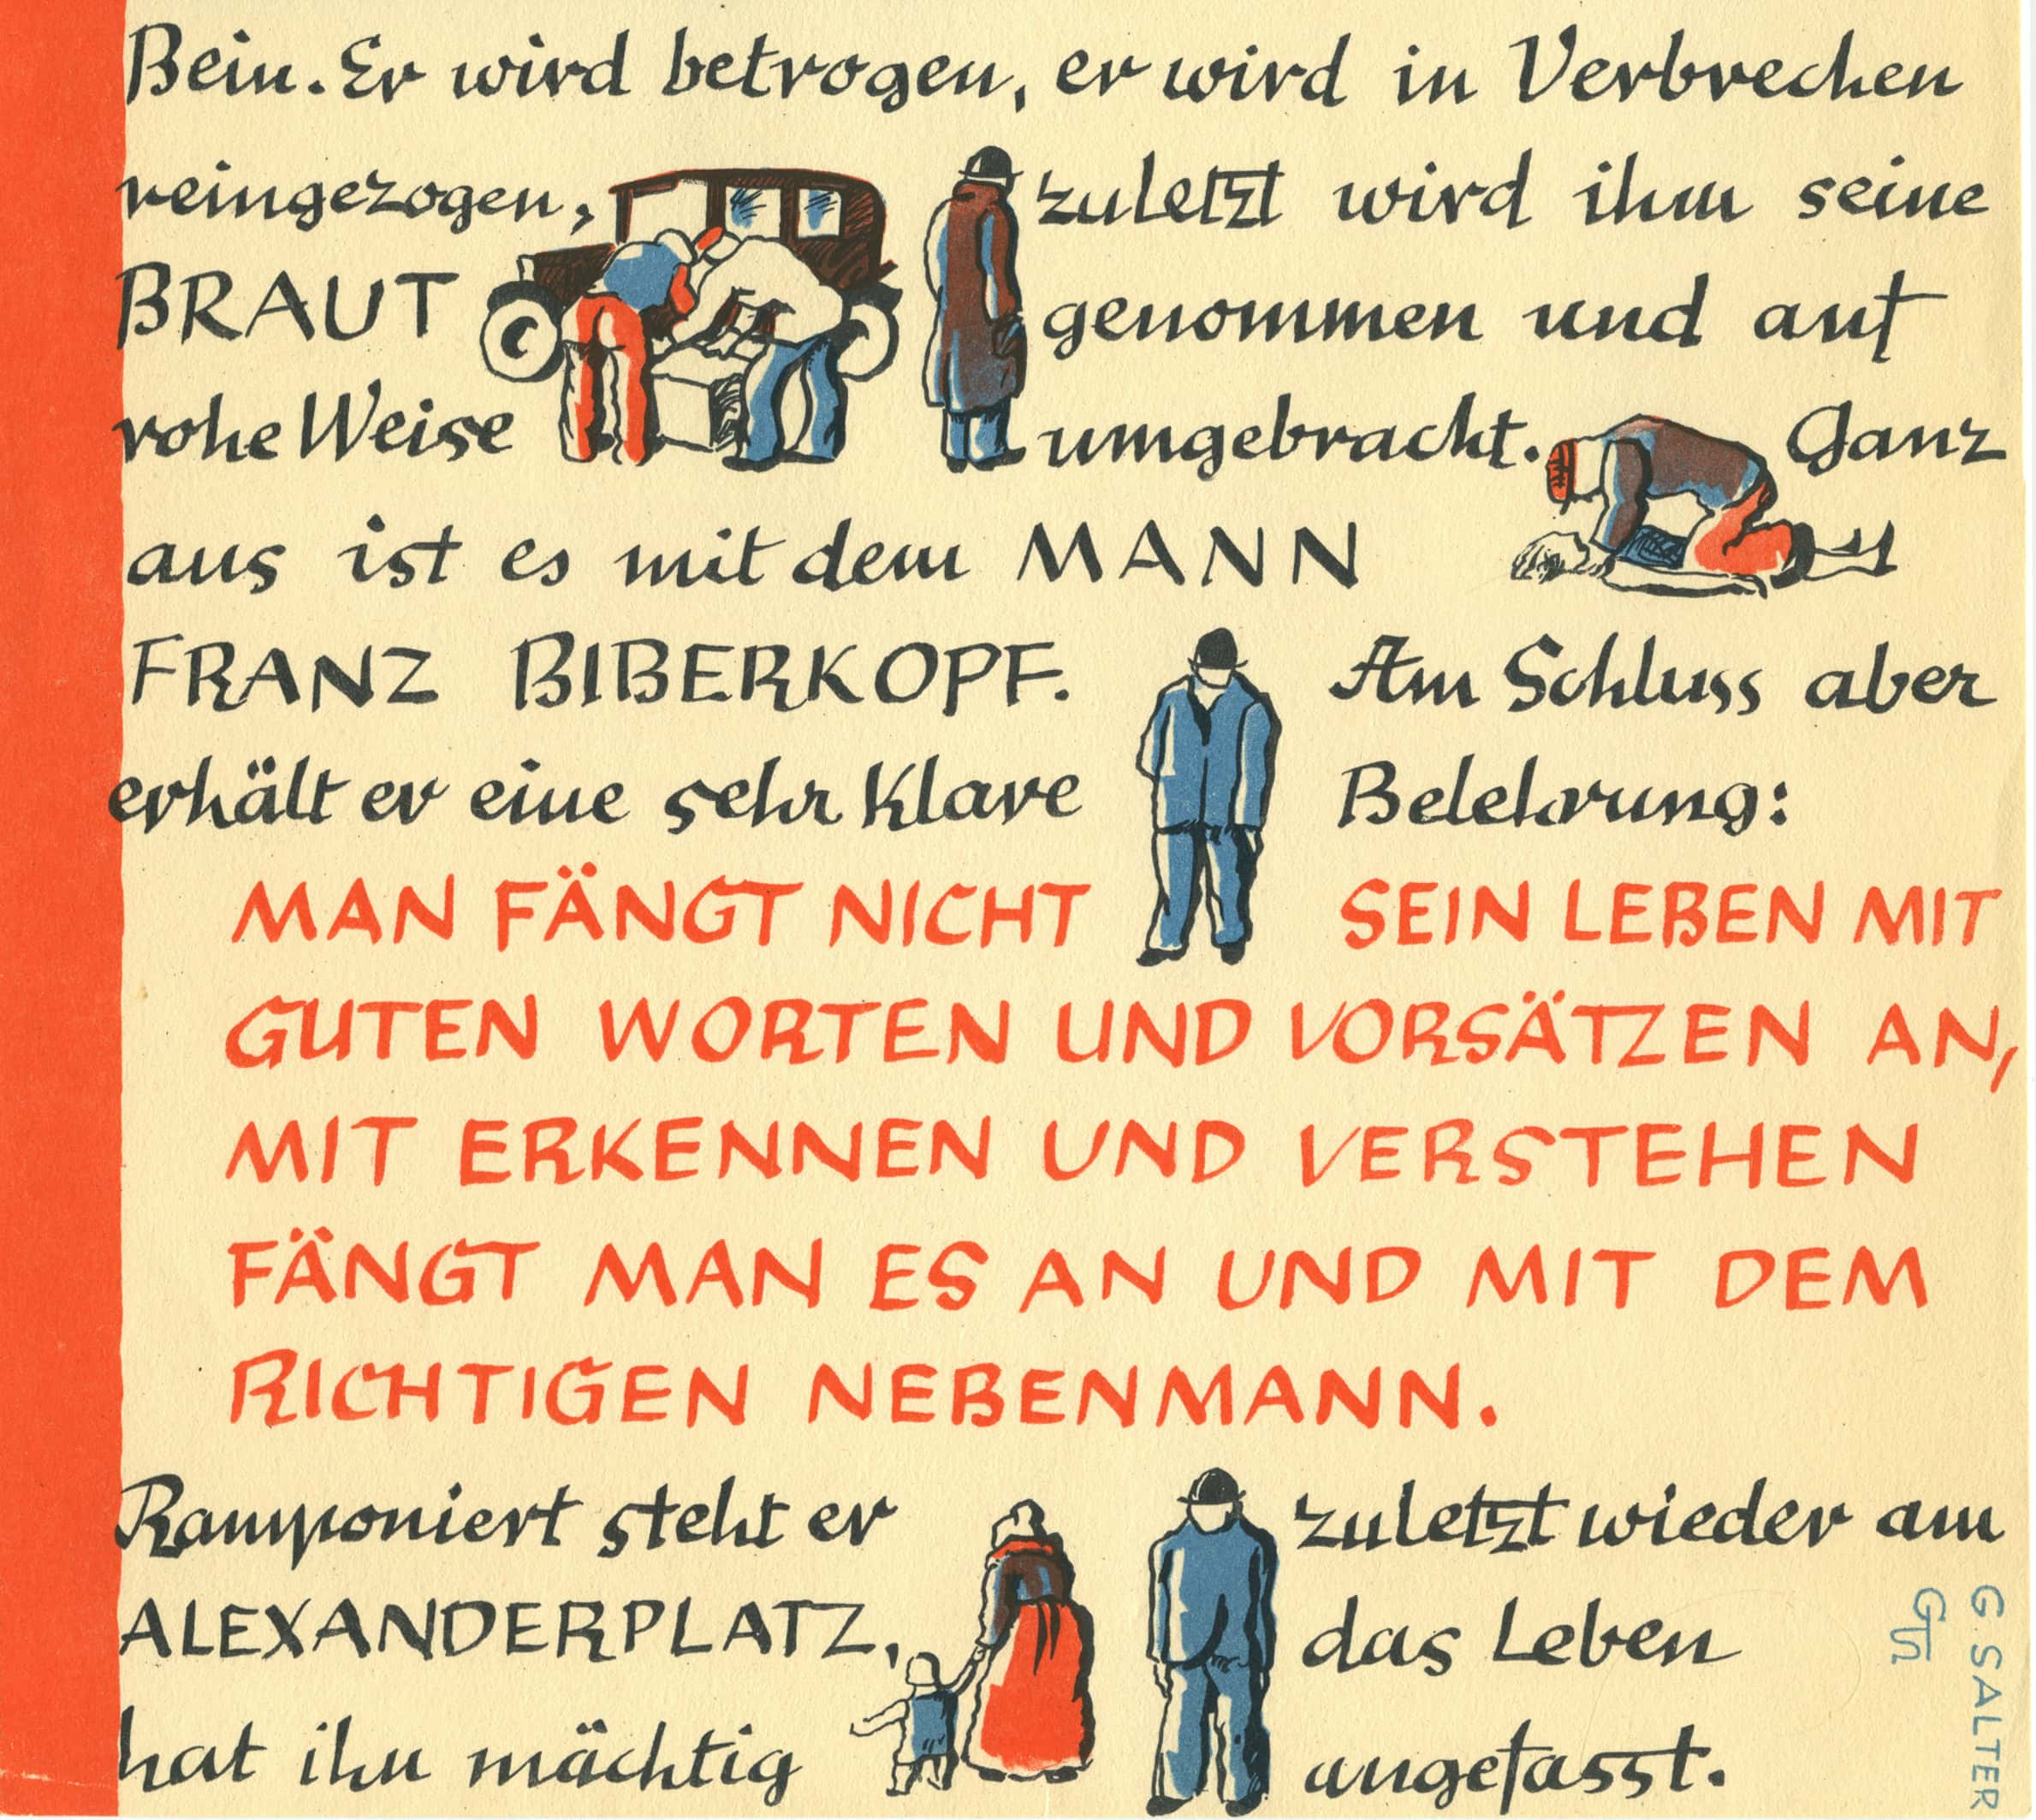 Bein. Er wird betrogen, er wird in Verbrechen
reingezogen, zuletzt wird ihm seine
BRAUT genommen und auf
rohe Weise umgebracht. Ganz
aus ist es mit dem MANN
FRANZ BIBERKOPF. Am Schluss aber
erhält er eine sehr klare Belehrung:
MAN FÄNGT NICHT SEIN LEBEN MIT
GUTEN WORTEN UND VORSÄTZEN AN,
MIT ERKENNEN UND VERSTEHEN
FÄNGT MAN ES AN UND MIT DEM
RICHTIGEN NEBENMANN.
Ramponiert steht er zuletzt wieder am
ALEXANDERPLATZ, das Leben
hat ihn mächtig angefasst.
G. SALTER
GS